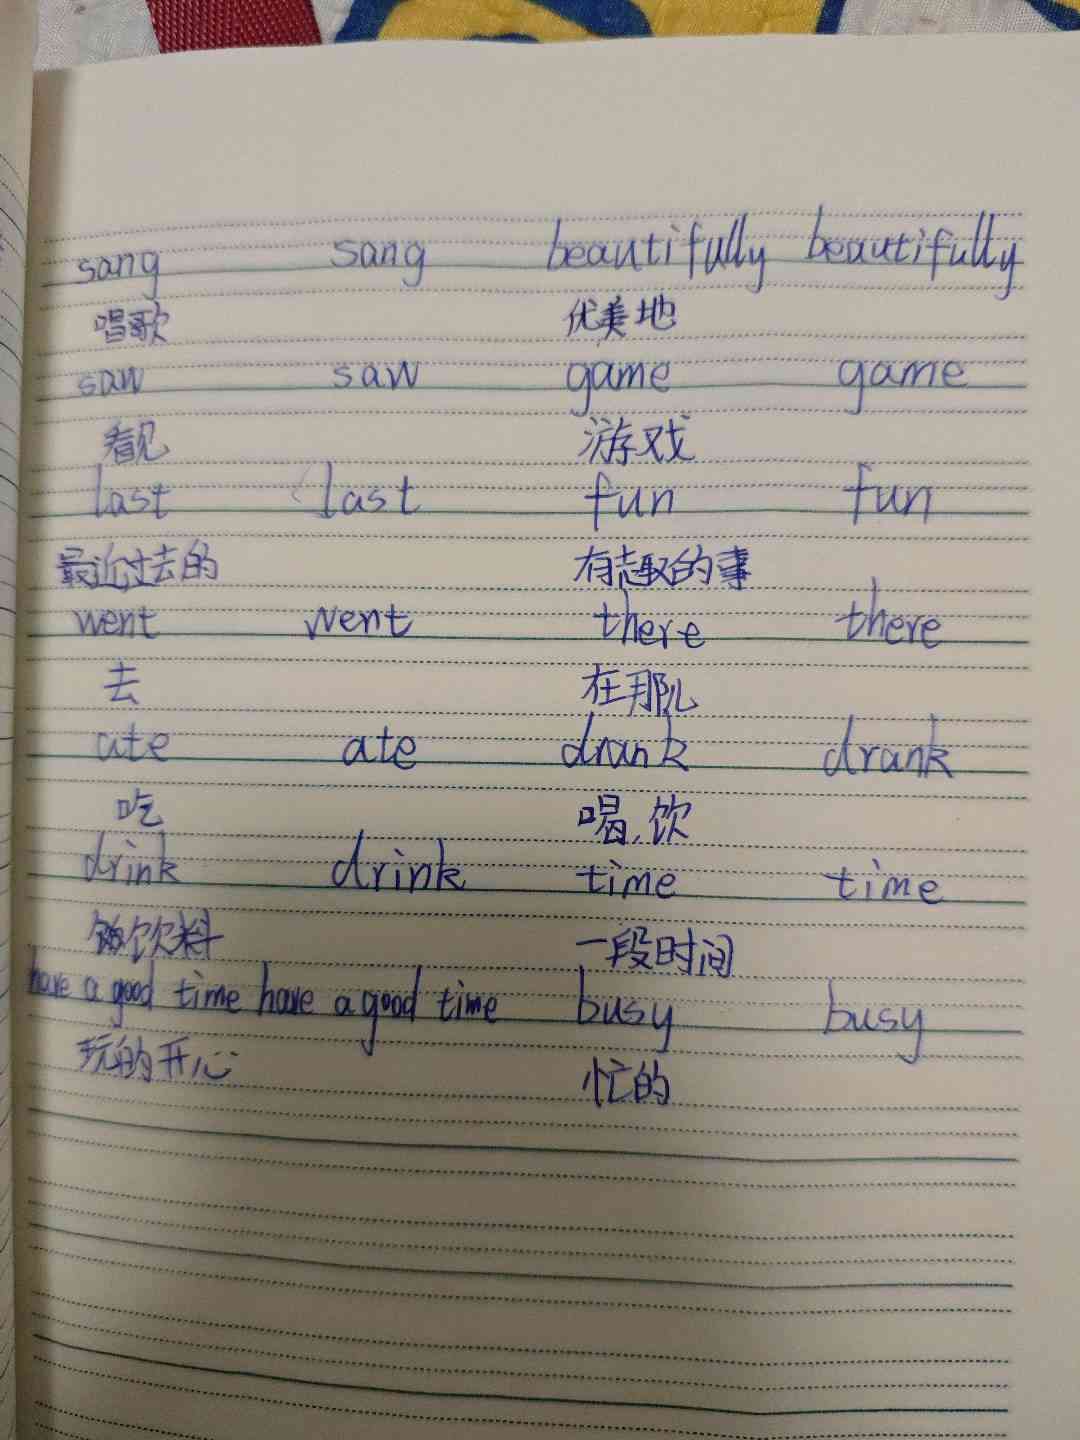 sang sang beautifully beautifully
唱歌 优美地
saw saw game game
看见 游戏
last last fun fun
最近过去的 有趣的事
went went there there
去 在那儿
ate ate drank drank
吃 喝,饮
drink drink time time
饮料 一段时间
have a good time have a good time busy busy
玩的开心 忙的